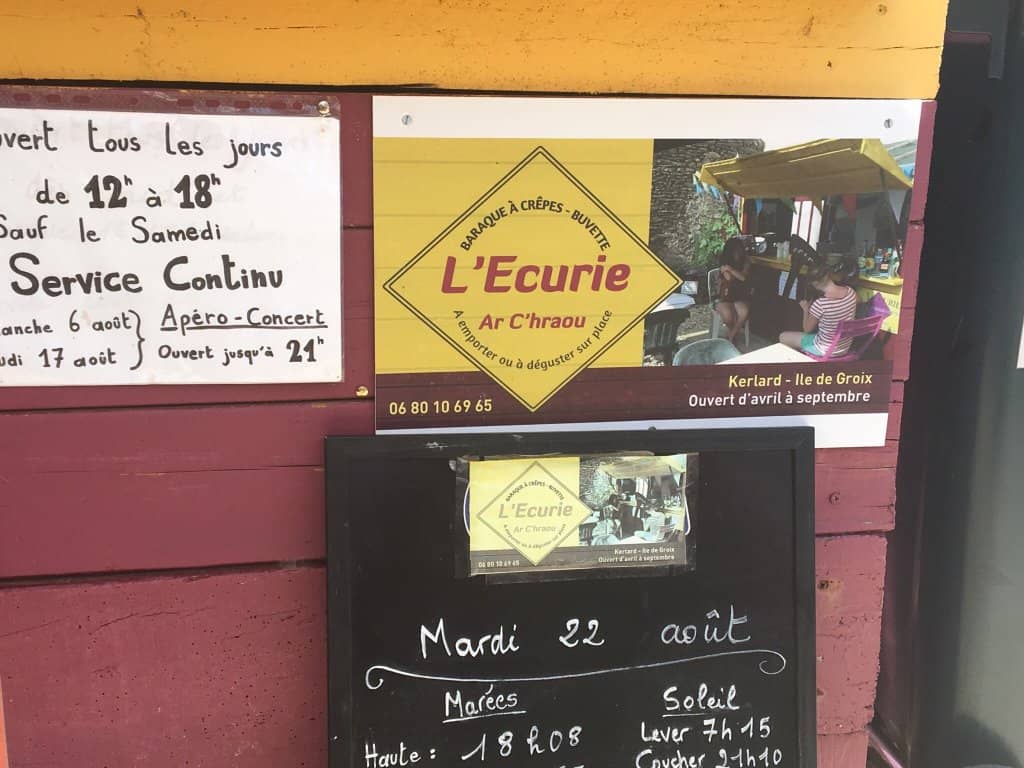 uvert tous les jours
de 12h à 18h
Sauf le Samedi
Service Continu
anche 6 août } Apéro-Concert
udi 17 août } Ouvert jusqu'à 21h
BARAQUE À CRÊPES - BUVETTE
L'Ecurie
Ar C'hraou
A emporter ou à déguster sur place
06 80 10 69 65
Kerlard - Ile de Groix
Ouvert d'avril à septembre
BARAQUE À CRÊPES - BUVETTE
L'Ecurie
Ar C'hraou
A emporter ou à déguster sur place
06 80 10 69 65
Kerlard - Ile de Groix
Ouvert d'avril à septembre
Mardi 22 août
Marées
Haute : 18h08
Soleil
Lever 7h15
Coucher 21h10